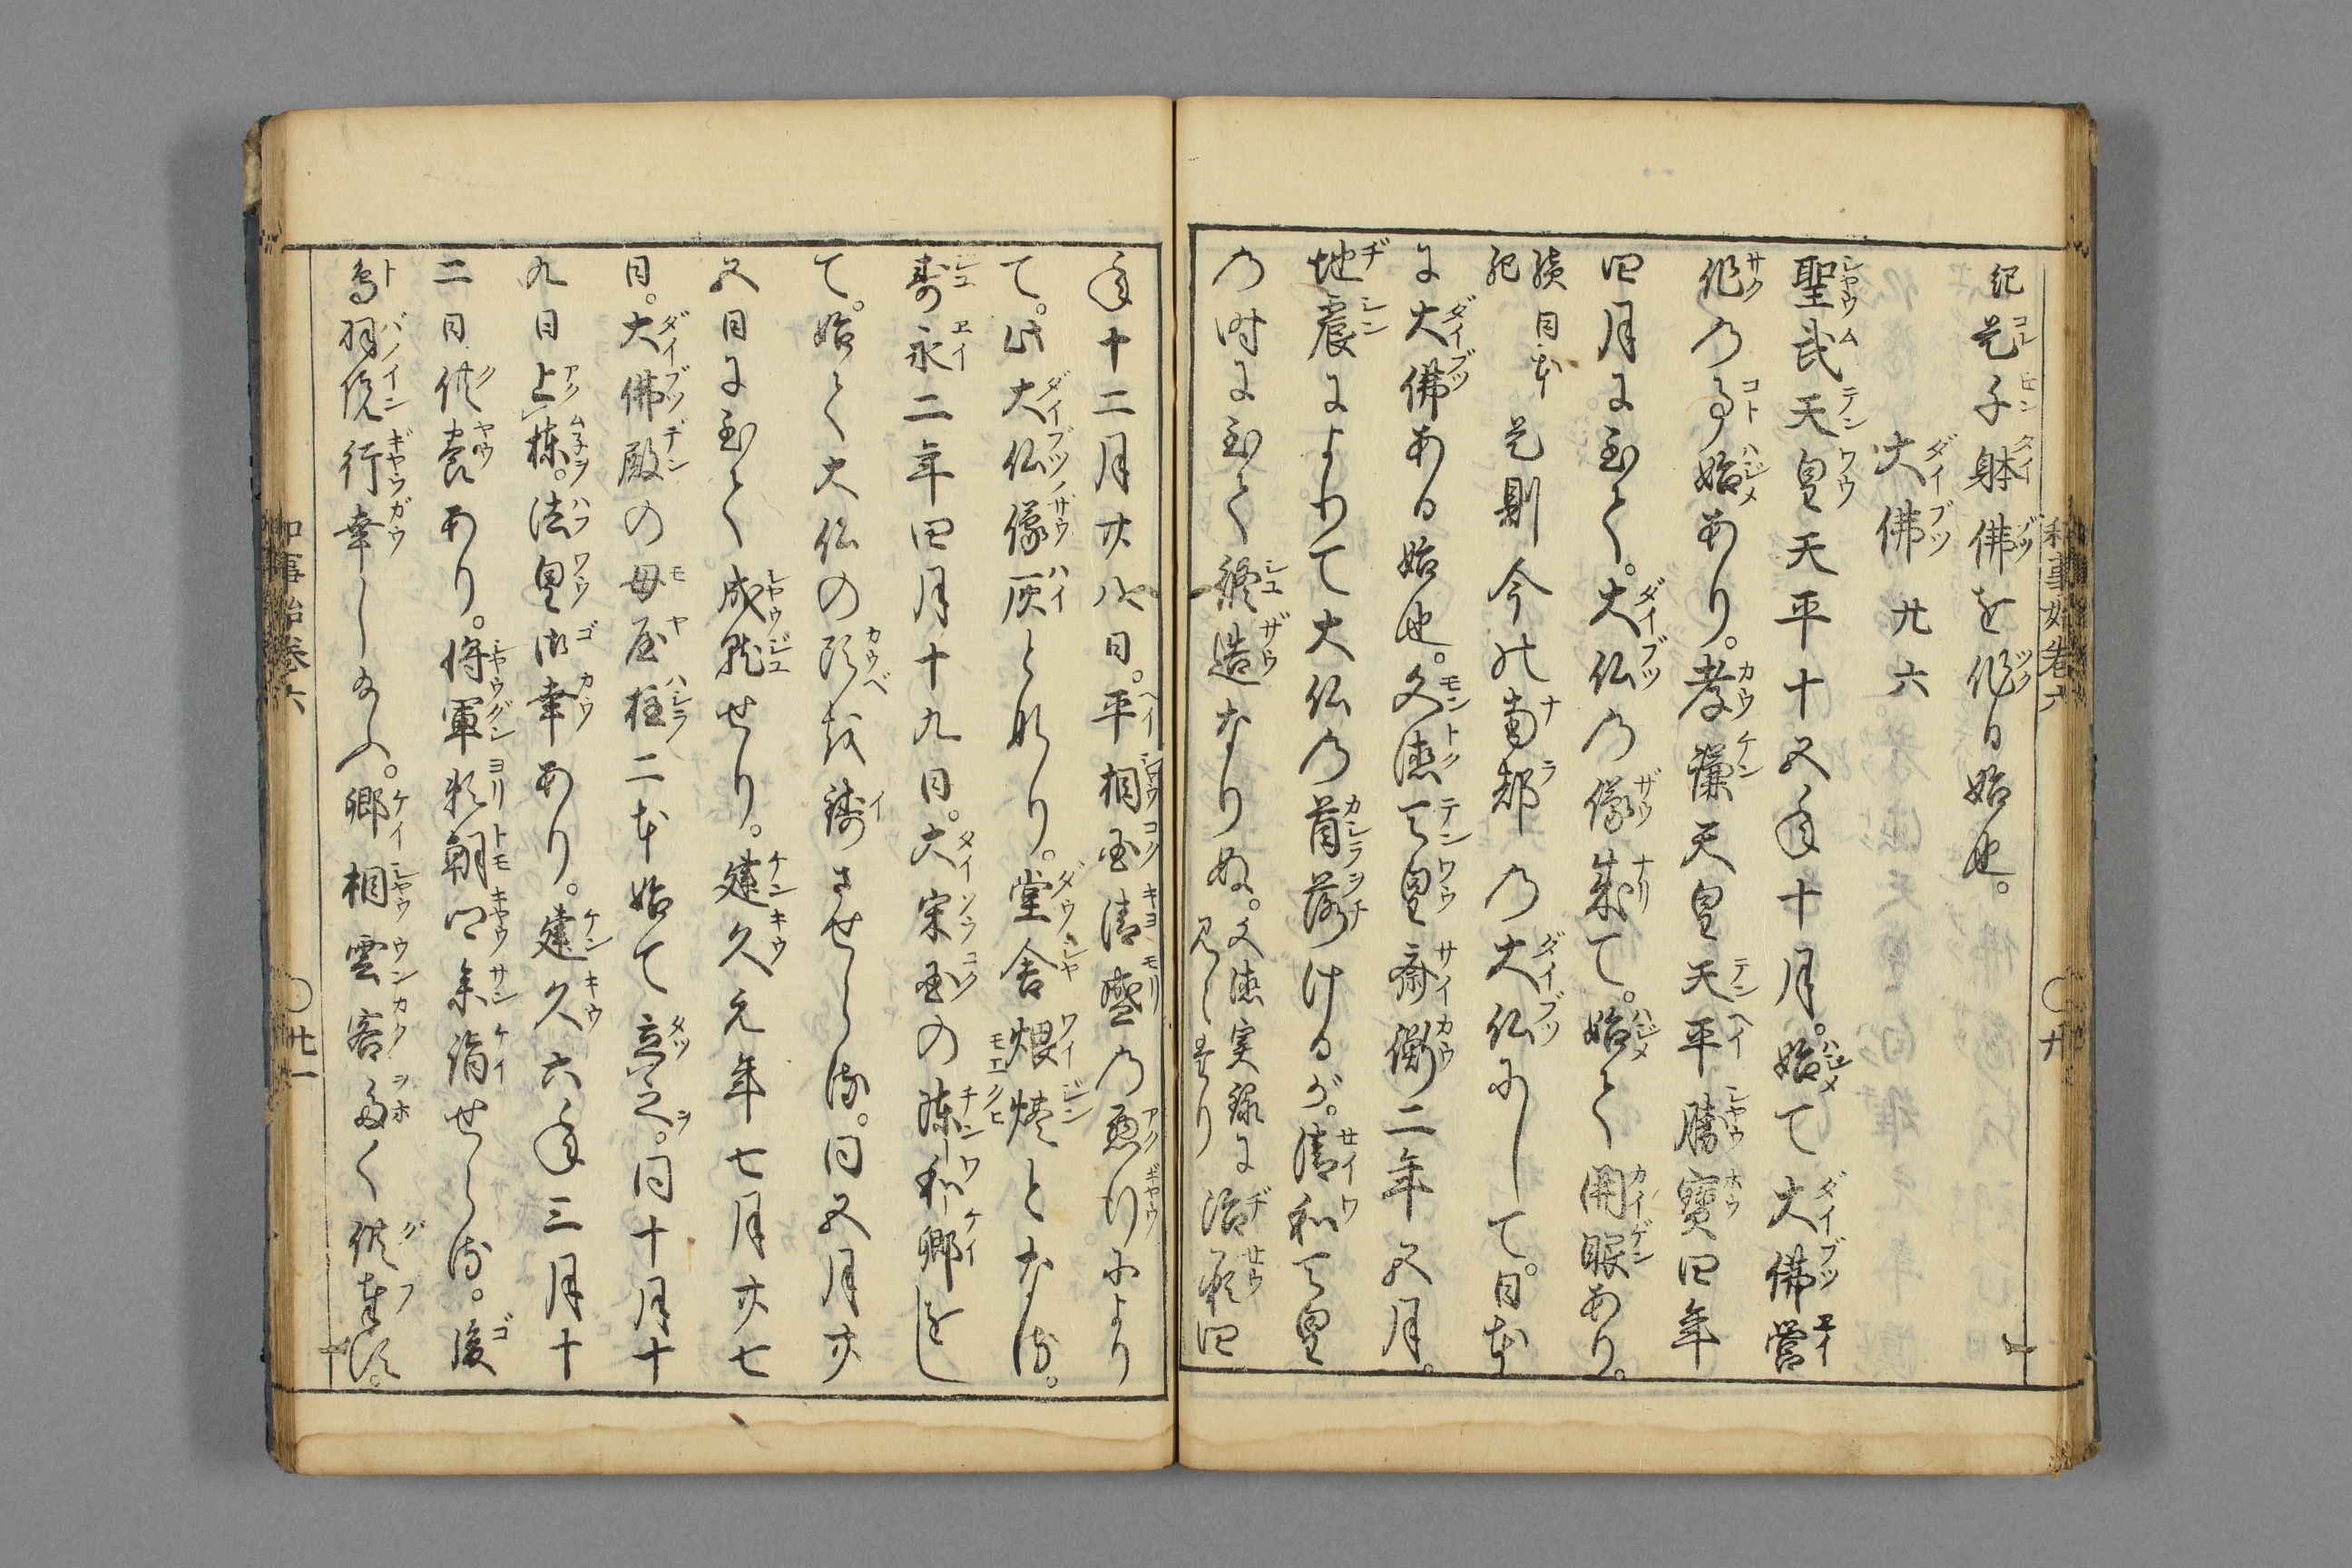 紀是等身躰佛を作る始也。
大佛 廿六
聖武天皇天平十五年十月。始て大佛營
作の事始あり。孝謙天皇天平勝寶四年
四月に至て。大仏の像成て。始て開眼あり。
續日本紀 是則今の南都の大仏にして。日本
に大佛ある始也。文徳天皇斎衡二年五月。
地震によりて大仏の首落けるが。清和天皇
の時に至て終造なりぬ。文徳実録に見えたり 治承四
年十二月廿八日。平相国清盛の悪行により
て。此大仏像灰となり。堂舎煨燼となる。
寿永二年四月十九日。大宋国の陳和卿をし
て。始て大仏の頭を鋳させらる。同五月廿
五日に至て成就せり。建久元年七月廿七
日。大佛殿の母屋柱二本始て立之。同十月十
九日上棟。法皇御幸あり。建久六年三月十
二日供養あり。将軍頼朝卿参詣せらる。後
鳥羽院行幸し給ふ。卿相雲客多く供奉す。
和事始巻六 〇廿
和事始巻六 〇廿一